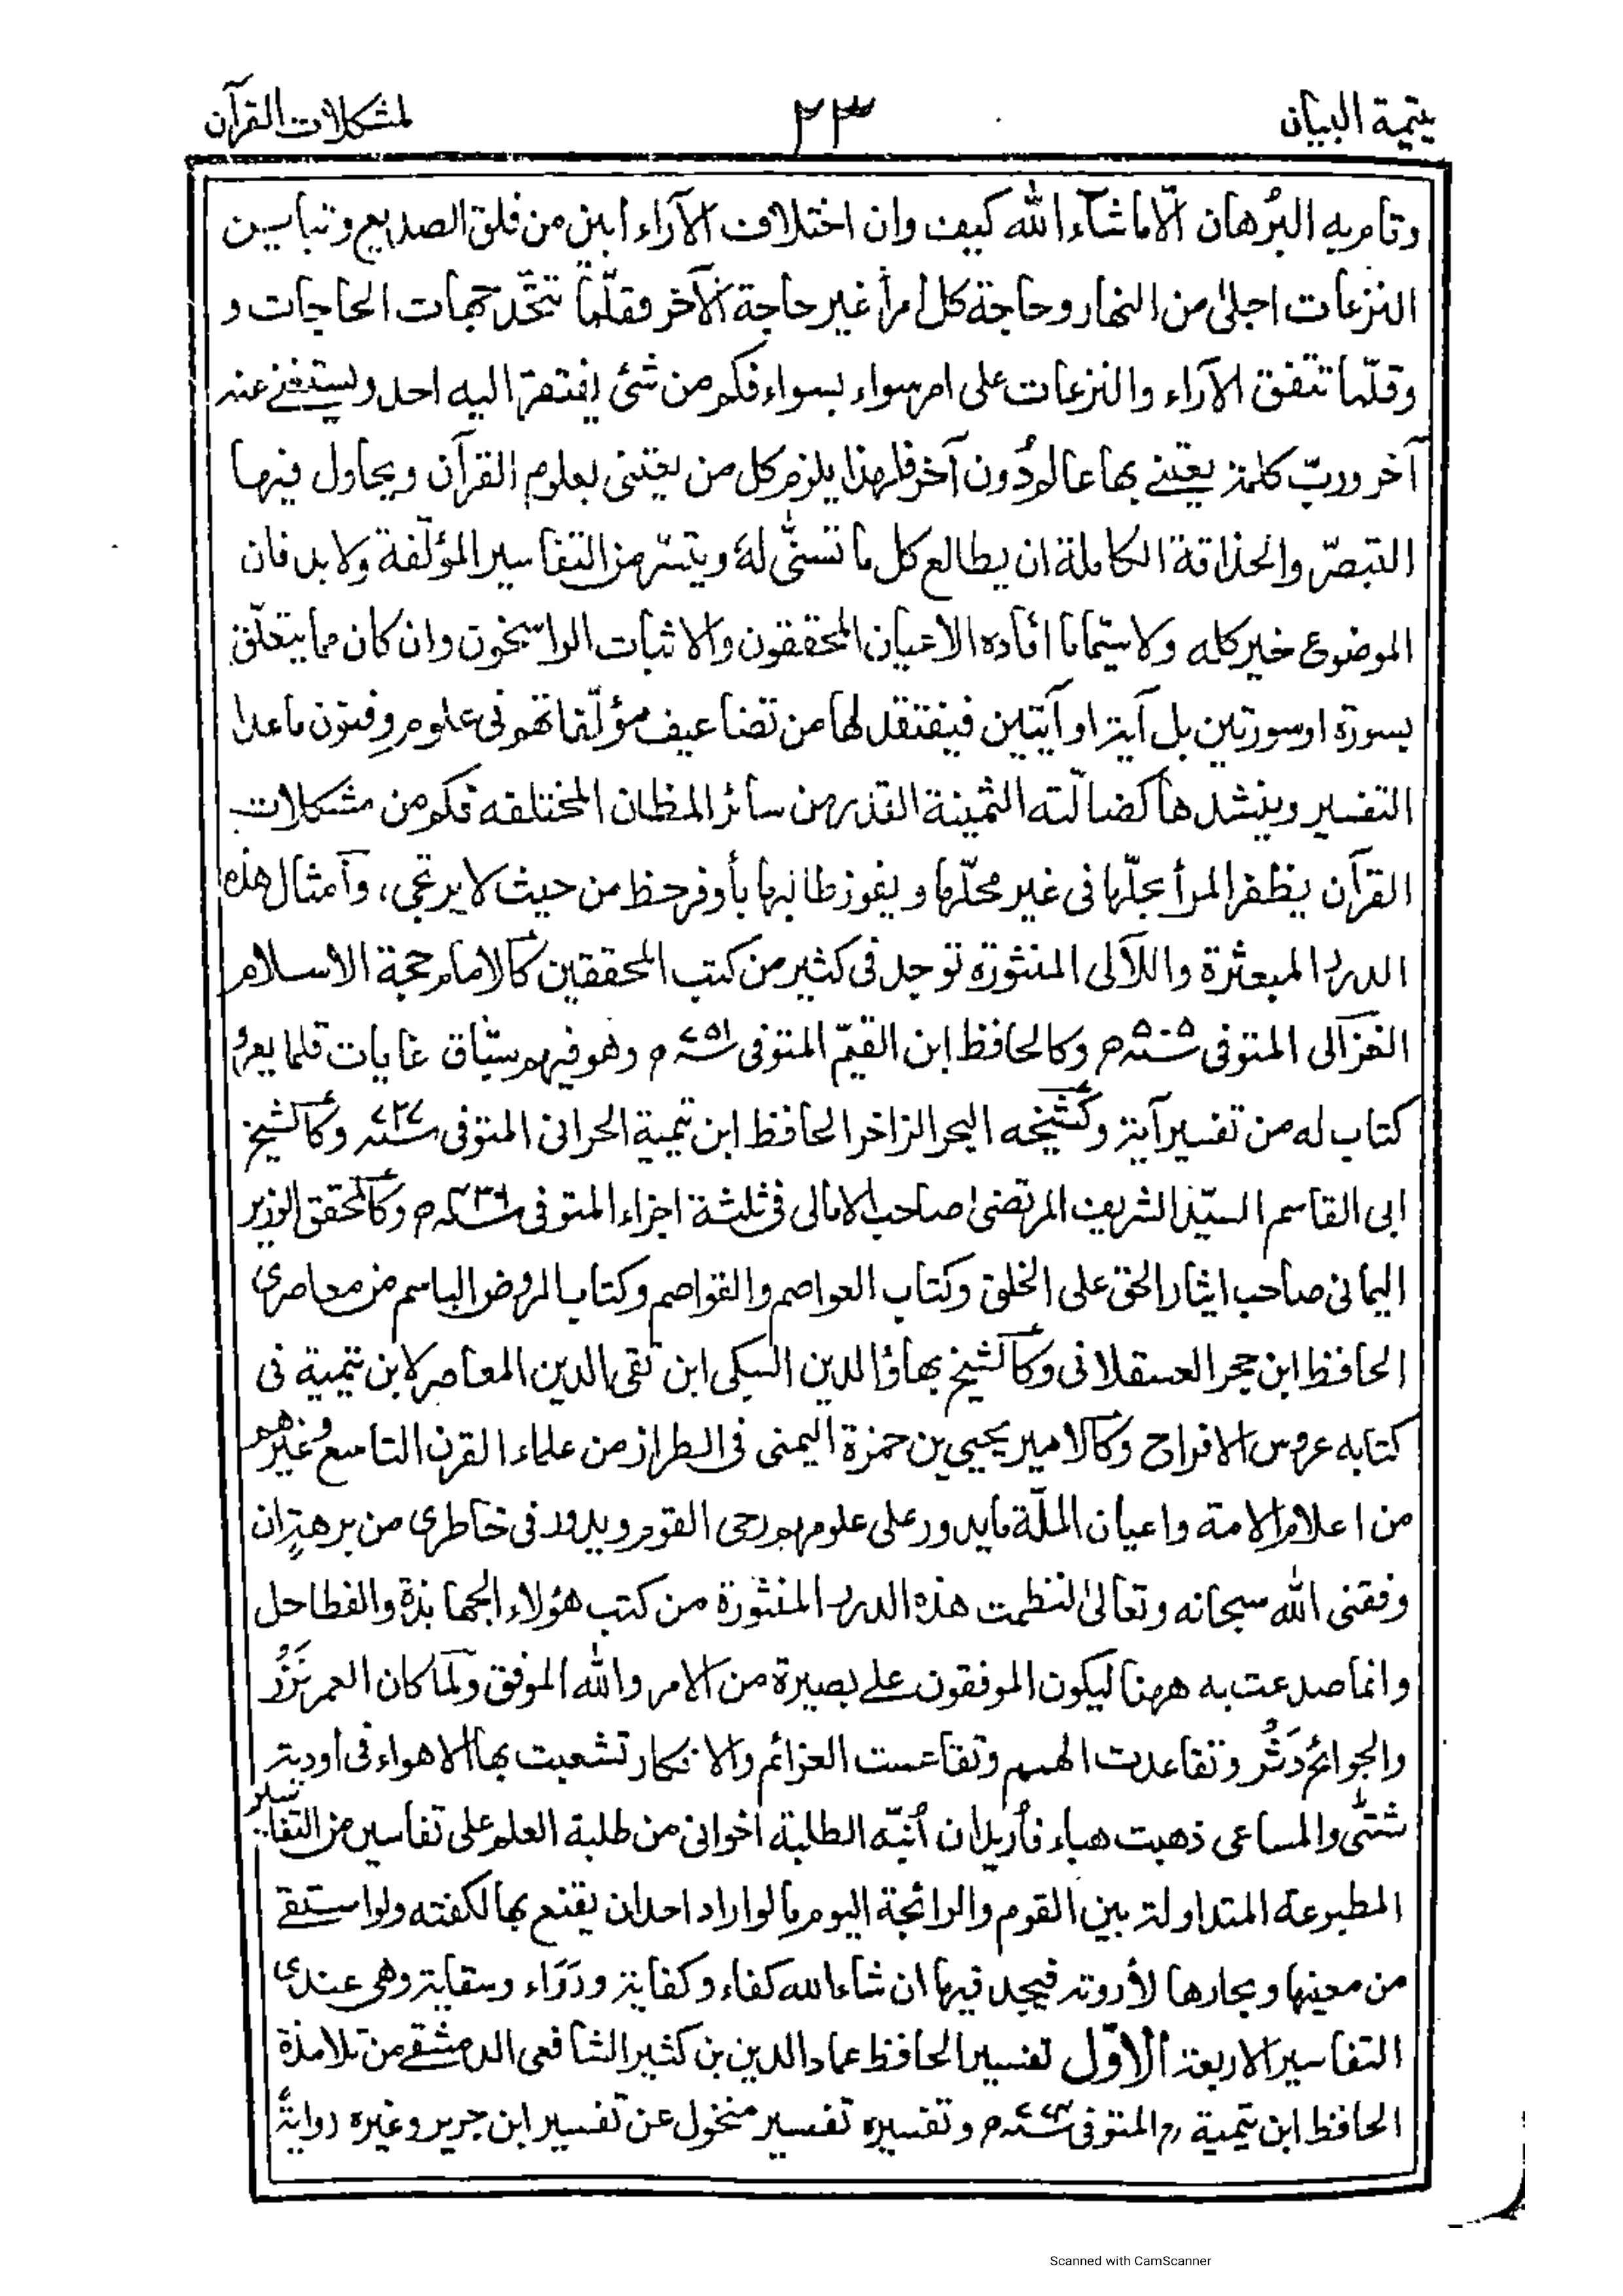 يتيمة البيان ٢٣ لمشكلات القرآن
وتامر به البُرهان الّا ما شآء الله كيف وان اختلاف الآراء ابين من فلق الصديع وتباين
النزعات اجلىٰ من النهار وحاجة كل امرأ غير حاجة الآخر وقلّما تتحّد جهات الحاجات و
وقلّما تتفق الآراء والنزعات على امر سواء بسواء فكم من شئ يفتقر اليه احد ويستغنے عنه
آخر وربّ كلمة يعتنے بها عالم دُون آخر فلهذا يلزم كل من يعتنى بعلوم القرآن ويحاول فيها
التبصّر والحذاقة الكاملة ان يطالع كل ما تسنّٰى له ويتسّر من التفاسير المؤلّفة ولا بد فان
الموضوع خير كله ولا سيّما ما افاده الاعيان المحققون والاثبات الراسخون وان كان مما يتعلّق
بسورة او سورتين بل آية او آيتين فيفتقد لها من تضاعيف مؤلّفاتهم فى علوم وفنون ما عدا
التفسير وينشدها كضالّته الثمينة القدر من سائر المظان المختلفه فكم من مشكلات
القرآن يظفر المرأ بحلّها فى غير محلّها ويفوز طالبها بأوفر حظ من حيث لا يرتجى، وآمثال هذه
الدرر المبعثرة واللآلى المنثورة توجد فى كثير من كتب المحققين كالامام حجة الاسلام
الغزالى المتوفى ٥٠٥ سنه م وكالحافظ ابن القيّم المتوفى ٧٥١ سنه م وهو فيهم سبّاق غايات قلما يعرؤ
كتاب له من تفسير آية وكشيخه البحر الزاخر الحافظ ابن تيمية الحرانى المتوفى ٧٢٨ سنه وكالشيخ
ابى القاسم السيّد الشريف المرتضىٰ صاحب الامالى فى ثلثة اجزاء المتوفى ٤٣٦ سنه م وكالمحقق الوزير
اليمانى صاحب ايثار الحق على الخلق وكتاب العواصم والقواصم وكتاب الروض الباسم من معاصرى
الحافظ ابن حجر العسقلانى وكالشيخ بهاؤ الدين السبكى ابن تقى الدين المعاصر لابن تيمية فى
كتابه عروس الافراح وكالامير يحيي بن حمزة اليمنى فى الطراز من علماء القرن التاسع وغيرهم
من اعلام الامة واعيان الملّة ما يدور على علومهم رحى القوم ويدور فى خاطرى من برهةٍ ان
وفقنى الله سبحانه وتعالىٰ لنظمت هذه الدرر المنثورة من كتب هؤلاء الجهابذة والفطاحل
وانما صدعت به ههنا ليكون الموفقون علے بصيرة من الامر والله الموفق ولمّا كان العمر نَزْرُ
والجوائح دَثْرُ وتقاعدت الهمم وتقاعست العزائم والافكار تشعبت بها الاهواء فى أودية
شتّٰى والمساعى ذهبت هباء فأريد ان أنبّه الطلبة اخوانى من طلبة العلم على تفاسير من التفاسير
المطبوعة المتداولة بين القوم والرائجة اليوم ما لو اراد احد ان يقنع بها لكفته ولو استقے
من معينها وبحارها لأروته فيجد فيها ان شاء الله كفاء وكفاية ورَوَاء وسقاية وهى عندى
التفاسير الاربعة الاوّل تفسير الحافظ عماد الدين بن كثير الشافعى الدمشقے من تلامذة
الحافظ ابن تيمية رح المتوفى ٧٧٤ سنه م وتفسيره تفسير منخول عن تفسير ابن جرير وغيره روايةً
Scanned with CamScanner